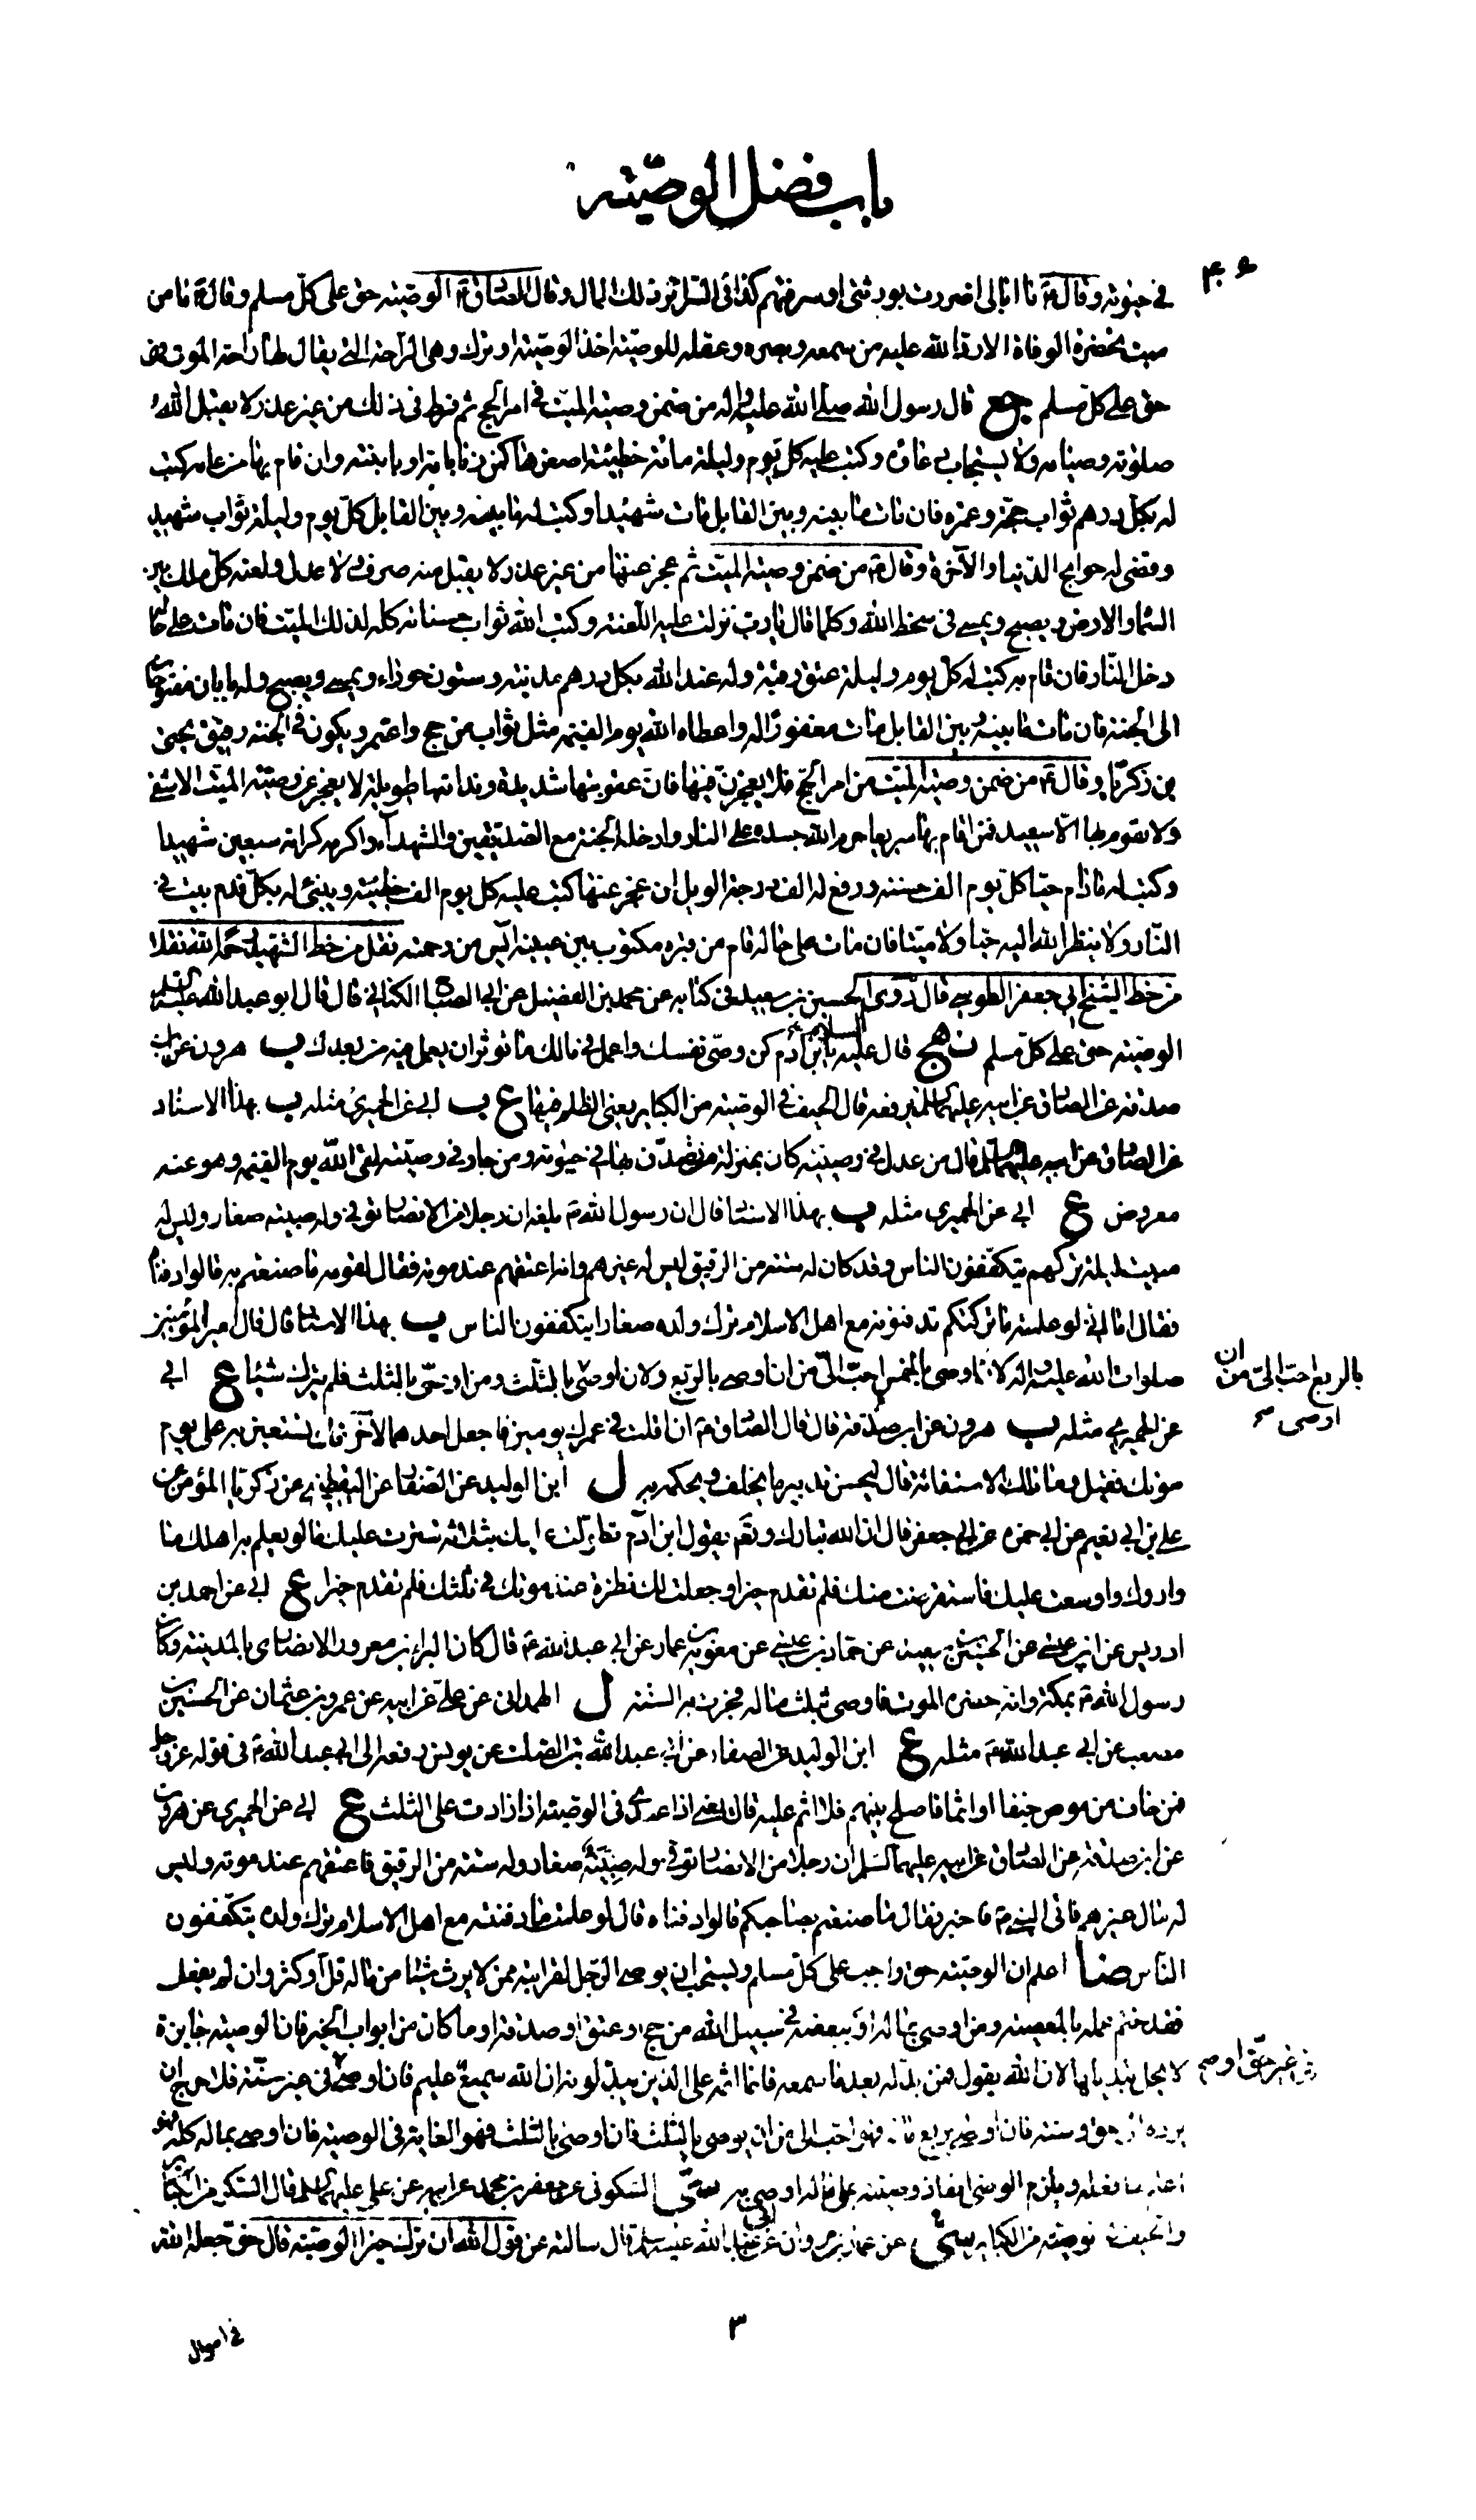 باب فضل الوصيّة
في حيوته وقال ع ما ابالى اضررت بورثتى او سرقتهم كذا فى التنزيل ذلك المال وقال الصادق ع الوصيّة حق على كلّ مسلم وقال ع ما من
ميت تحضره الوفاة الا رد الله عليه من سمعه وبصره وعقله للوصيّة اخذ الوصيّة او ترك وهى الراحة التي يقال لها راحة الموت فهى
حق على كلّ مسلم جع قال رسول الله صلى الله عليه واله من ضمن وصيّة الميّت في امر الحج ثم فرط في ذلك من غير عذر لا يقبل الله
صلوته وصيامه ولا يستجاب دعاؤه وكتب عليه كلّ يوم وليلة مائة خطيئة اصغرها كمن زنا بامّه او بابنته وان قام بها من عامه كتب
له بكلّ درهم ثواب حجّة وعمرة فان مات ما بينه وبين القابل مات شهيدا وكتب له ما بينه وبين القابل كلّ يوم وليلة ثواب شهيد
وقضى له حوايج الدنيا والآخرة وقال ع من ضمن وصيّة الميّت ثم عجز عنها من غير عذر لا يقبل منه صرف ولا عدل ولعنه كلّ ملك بين
السماء والارض ويصبح ويمسي في سخط الله وكلما قال يا رب نزلت عليه اللعنة وكتب الله ثواب حسناته كله لذلك الميّت فان مات على حاله
دخل النار فان قام به كتب له كلّ يوم وليلة عتق رقبة وله عند الله بكل درهم مدينة وستون حوراء ويمسي ويصبح وله بابان مفتوحان
الى الجنة فان مات ما بينه وبين القابل مات مغفورا له واعطاه الله يوم القيمة مثل ثواب من حج واعتمر ويكون في الجنة رفيق يحيى
بن زكريا وقال ع من ضمن وصيّة الميّت من امر الحج فلا يعجزن فيها فان عقوبتها شديدة وندامتها طويلة لا يعجز عن وصيّة الميّت الا شقى
ولا يقوم بها الا سعيد فمن قام بها سريعا حرم الله جسده على النار وادخله الجنة مع الصديقين والشهداء واكرمه كرامة سبعين شهيدا
وكتب له ما دام حيا كلّ يوم الف حسنة ورفع له الف درجة الويل ان عجز عنها كتب عليه كل يوم الف خطيئة ويبنى له بكلّ قدم بيت في
النار ولا ينظر الله اليه حيا ولا ميتا فان مات على حاله قام من قبره مكتوب بين عينيه آيس من رحمته نقل من خط الشهيد رحمه الله نقلا
من خط الشيخ ابي جعفر الطوسي قال روى الحسين بن سعيد في كتابه عن محمد بن الفضيل عن ابي الصباح الكناني قال قال ابو عبد الله عليه السلم
الوصيّة حق على كل مسلم نهج قال عليه السلام يا ابن آدم كن وصىّ نفسك واعمل في مالك ما توثر ان يعمل فيه من بعدك ب هرون عن ابن
صدقة عن الصادق عن ابيه عليهما السلم يرفعه قال الحيف في الوصيّة من الكباير يعني الظلم فيها ع ب ابي عن الحميري مثله ب بهذا الاسناد
عن الصادق عن ابيه عليهما السلم قال من عدل في وصيّته كان بمنزلة من تصدّق بها في حيوته ومن جار في وصيّته لقى الله يوم القيمة وهو عنه
معرض ع ابي عن الحميري مثله ب بهذا الاسناد قال ان رسول الله ص بلغه ان رجلا من الانصار توفي وله صبية صغار وليس له
مبيت ليلة تركهم يتكففون الناس وقد كان له ستة من الرقيق ليس له غيرهم وانه اعتقهم عند موته فقال لقومه ما صنعتم به قالوا دفناه
فقال اما اني لو علمته ما تركتكم تدفنونه مع اهل الاسلام ترك ولده صغارا يتكففون الناس ب بهذا الاسناد قال قال امير المؤمنين
صلوات الله عليه واله لان اوصى بالخمس احبّ الىّ من ان اوصي بالربع ولان اوصى بالثلث ومن اوصى بالثلث فلم يترك شيئا ع ابي
بالربع احبّ الىّ من ان
اوصى صح
عن الحميري مثله ب هرون عن ابن صدقة قال قال الصادق ع ان اجلت في عمرك يومين فاجعل احدهما لآخرتك تستعين به على يوم
موتك فقيل وما تلك الاستعانة قال ليحسن تدبير ما يخلف ويحكمه به ل ابن الوليد عن الصفار عن اليقطيني عن زكريا المؤمن عن
علي بن ابي نعيم عن ابي حمزة عن ابي جعفر قال ان الله تبارك وتعالى يقول ابن آدم تطولت عليك بثلاثة سترت عليك ما لو يعلم به اهلك ما
واروك واوسعت عليك فاستقرضت منك فلم تقدم خيرا وجعلت لك نظرة عند موتك في ثلثك فلم تقدم خيرا ع ابي عن احمد بن
ادريس عن ابن عيسى عن الحسين بن سعيد عن حماد بن عيسى عن معوية بن عمار عن ابي عبد الله ع قال كان البراء بن معرور الانصاري بالمدينة وكان
رسول الله ص بمكة وانه حضره الموت فاوصى بثلث ماله فجرت به السنة ل الهمداني عن علي عن ابيه عن عمرو بن عثمان عن الحسين بن
مصعب عن ابي عبد الله ع مثله ع ابن الوليد عن الصفار عن ابي عبد الله بن الصلت عن يونس رفعه الى ابي عبد الله ع في قوله عز وجل
فمن خاف من موص جنفا او اثما فاصلح بينهم فلا اثم عليه قال يعني اذا اعتدى في الوصيّة اذا زادت على الثلث ع ابي عن الحميري عن هرون
عن ابن صدقة عن الصادق عن ابيه عليهما السلم ان رجلا من الانصار توفي وله صبية صغار وله ستة من الرقيق فاعتقهم عند موته وليس
له مال غيرهم فاتى النبي ص فاخبر فقال ما صنعتم بصاحبكم قالوا دفناه قال لو علمت ما دفنته مع اهل الاسلام ترك ولده يتكففون
الناس ضا اعلم ان الوصيّة حق واجب على كلّ مسلم ويستحب ان يوصى الرجل لقرابته ممن لا يرث شيئا من ماله قلّ او كثر وان لم يفعل
فقد ختم عمله بالمعصية ومن اوصى بماله او ببعضه في سبيل الله من حج او عتق او صدقة او ما كان من ابواب الخير فان الوصيّة جايزة
لا يحل تبديلها لان الله يقول فمن بدله بعد ما سمعه فانما اثمه على الذين يبدلونه ان الله سميع عليم فان اوصى في غير سنّة فلا حرج ان
في غير حقّ او صح
يرده الى حق وسنة فان اوصى بربع ماله فهو احب الى من ان يوصى بالثلث فان اوصى بالثلث فهو الغاية في الوصيّة فان اوصى بماله كله فهو
اعلم بما فعله ويلزم الوصي انفاذ وصيّته على ما اوصى به شي السكوني عن جعفر بن محمد عن ابيه عن علي عليهم السلم قال السكر من الكباير
والحيف في الوصيّة من الكباير شي عن عمار بن مروان عن ابي عبد الله عليه السلم قال سالته عن قول الله ان ترك خيرا الوصيّة قال حق جعله الله
٣
في اموال